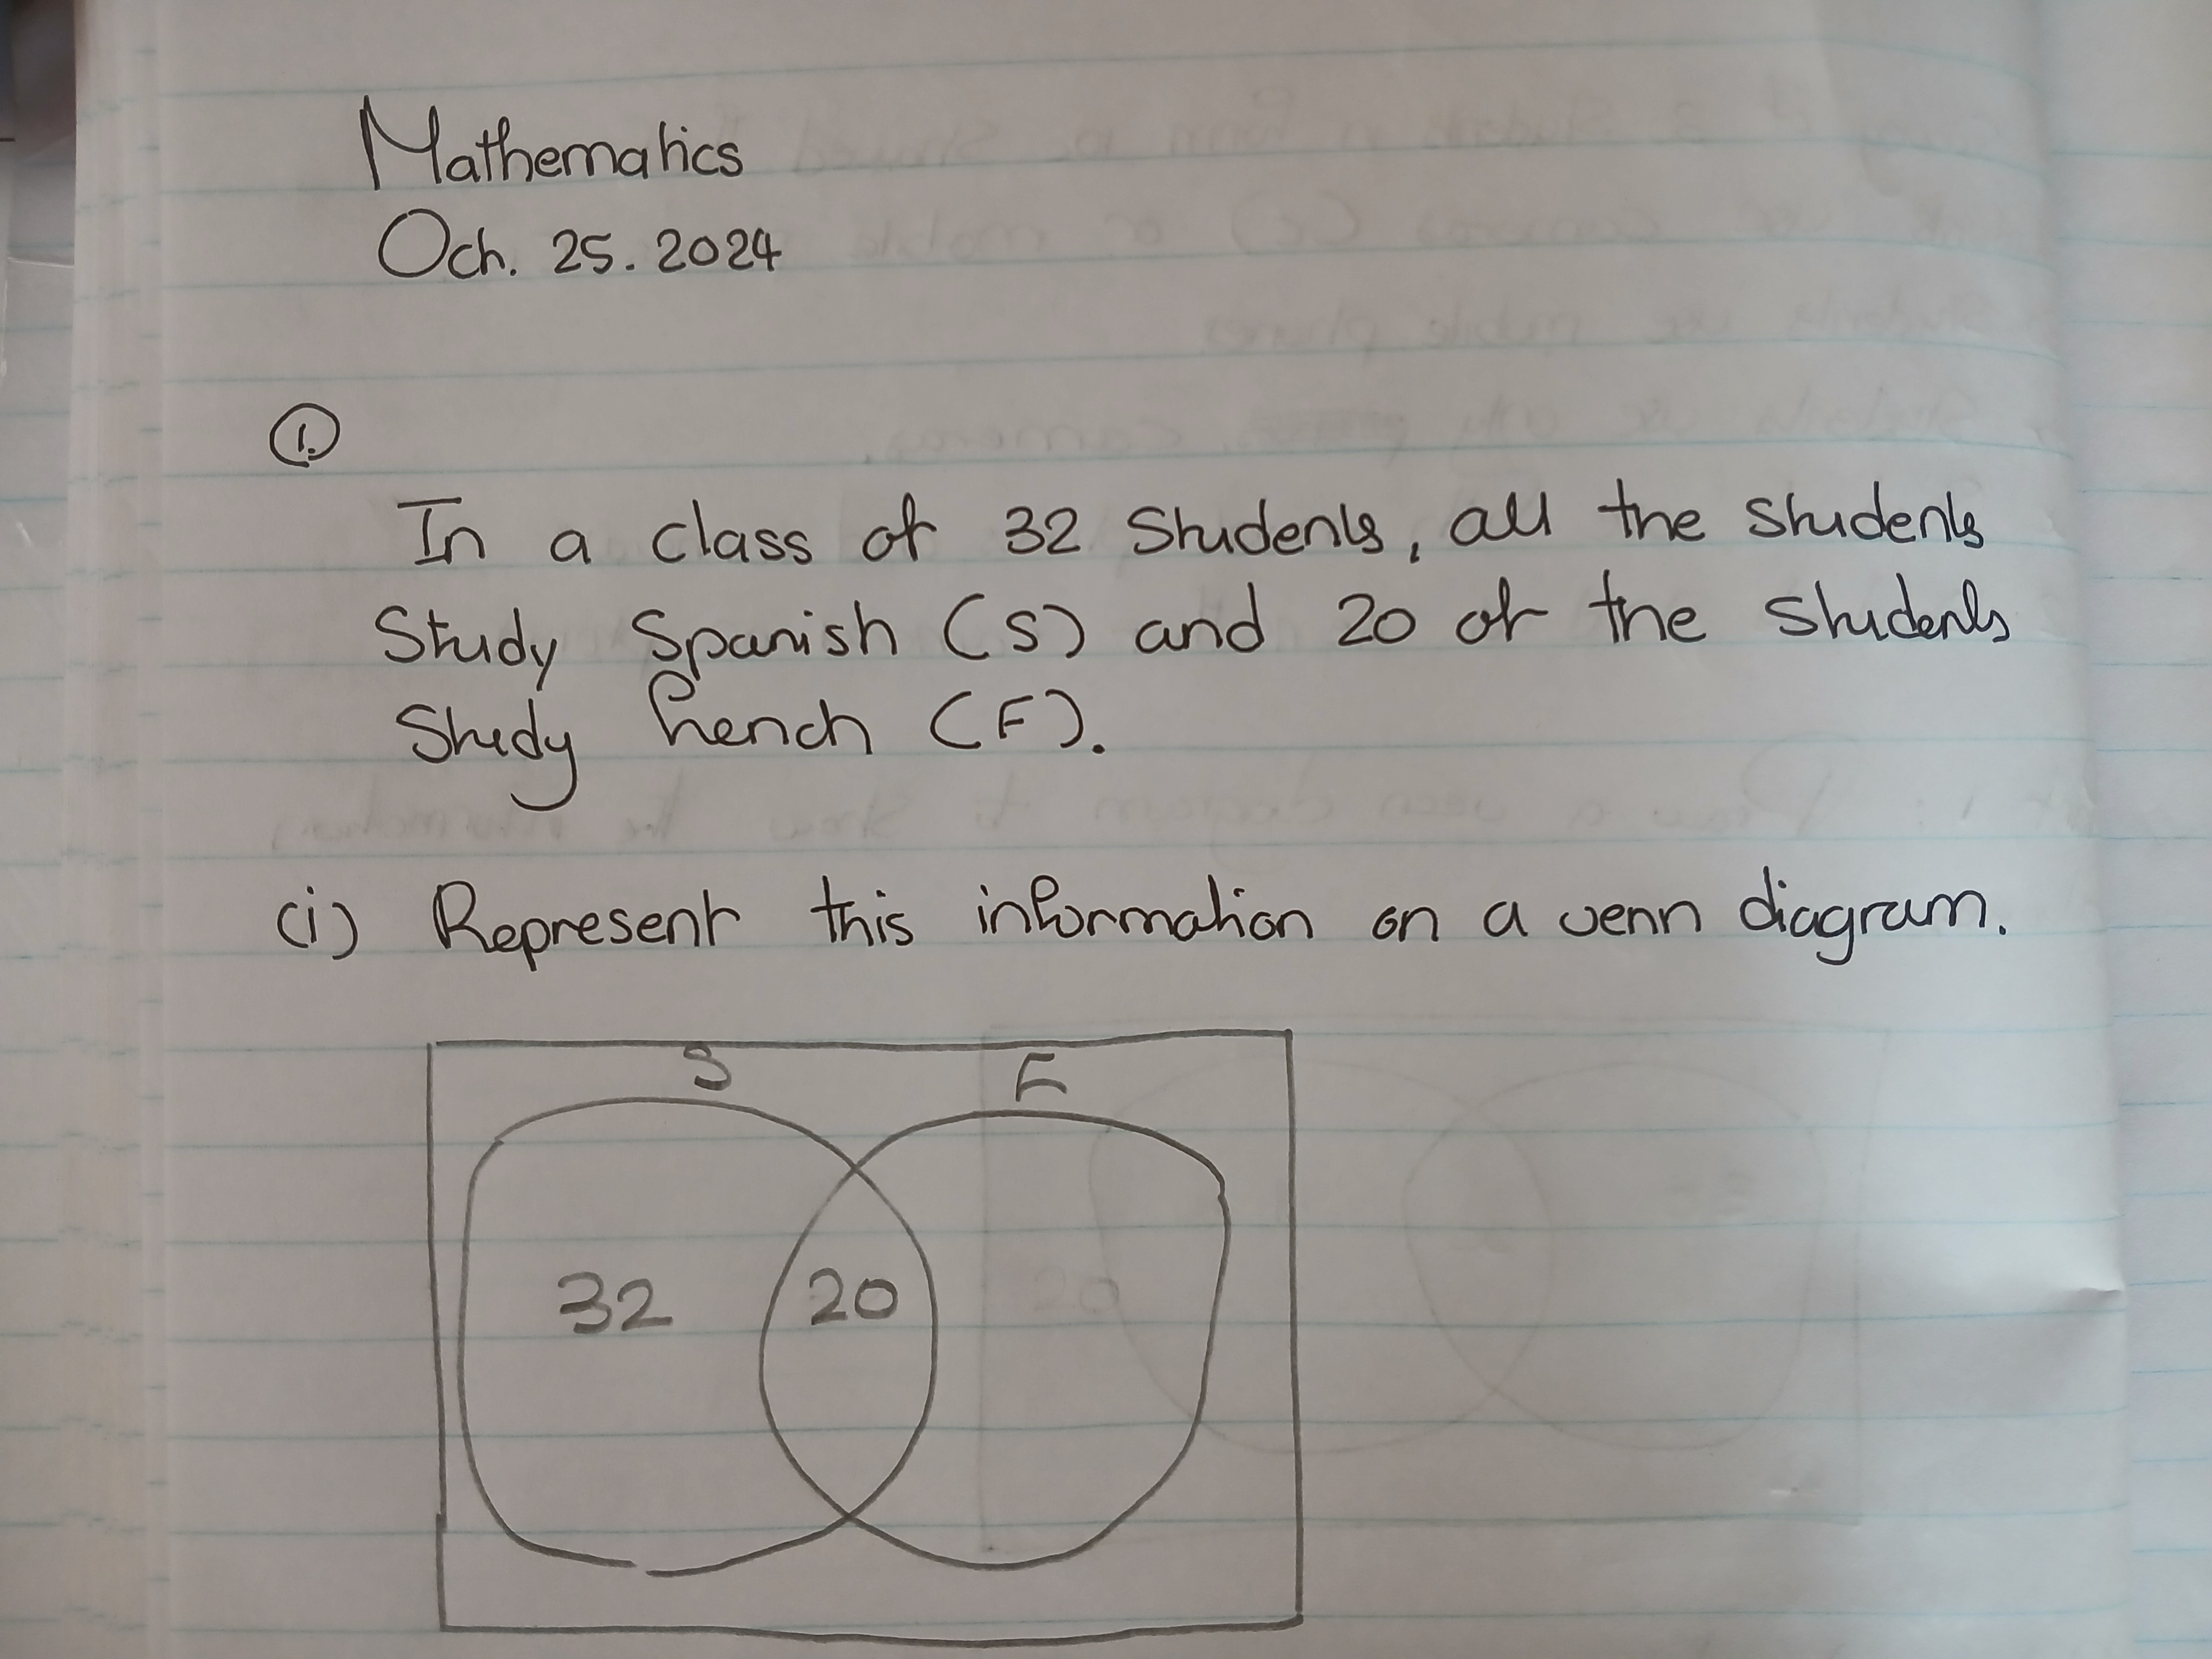 Mathematics
Oct. 25. 2024
1.
In a class of 32 students, all the students
study Spanish (S) and 20 of the students
study french (F).
(i) Represent this information on a venn diagram.
S F
32 20